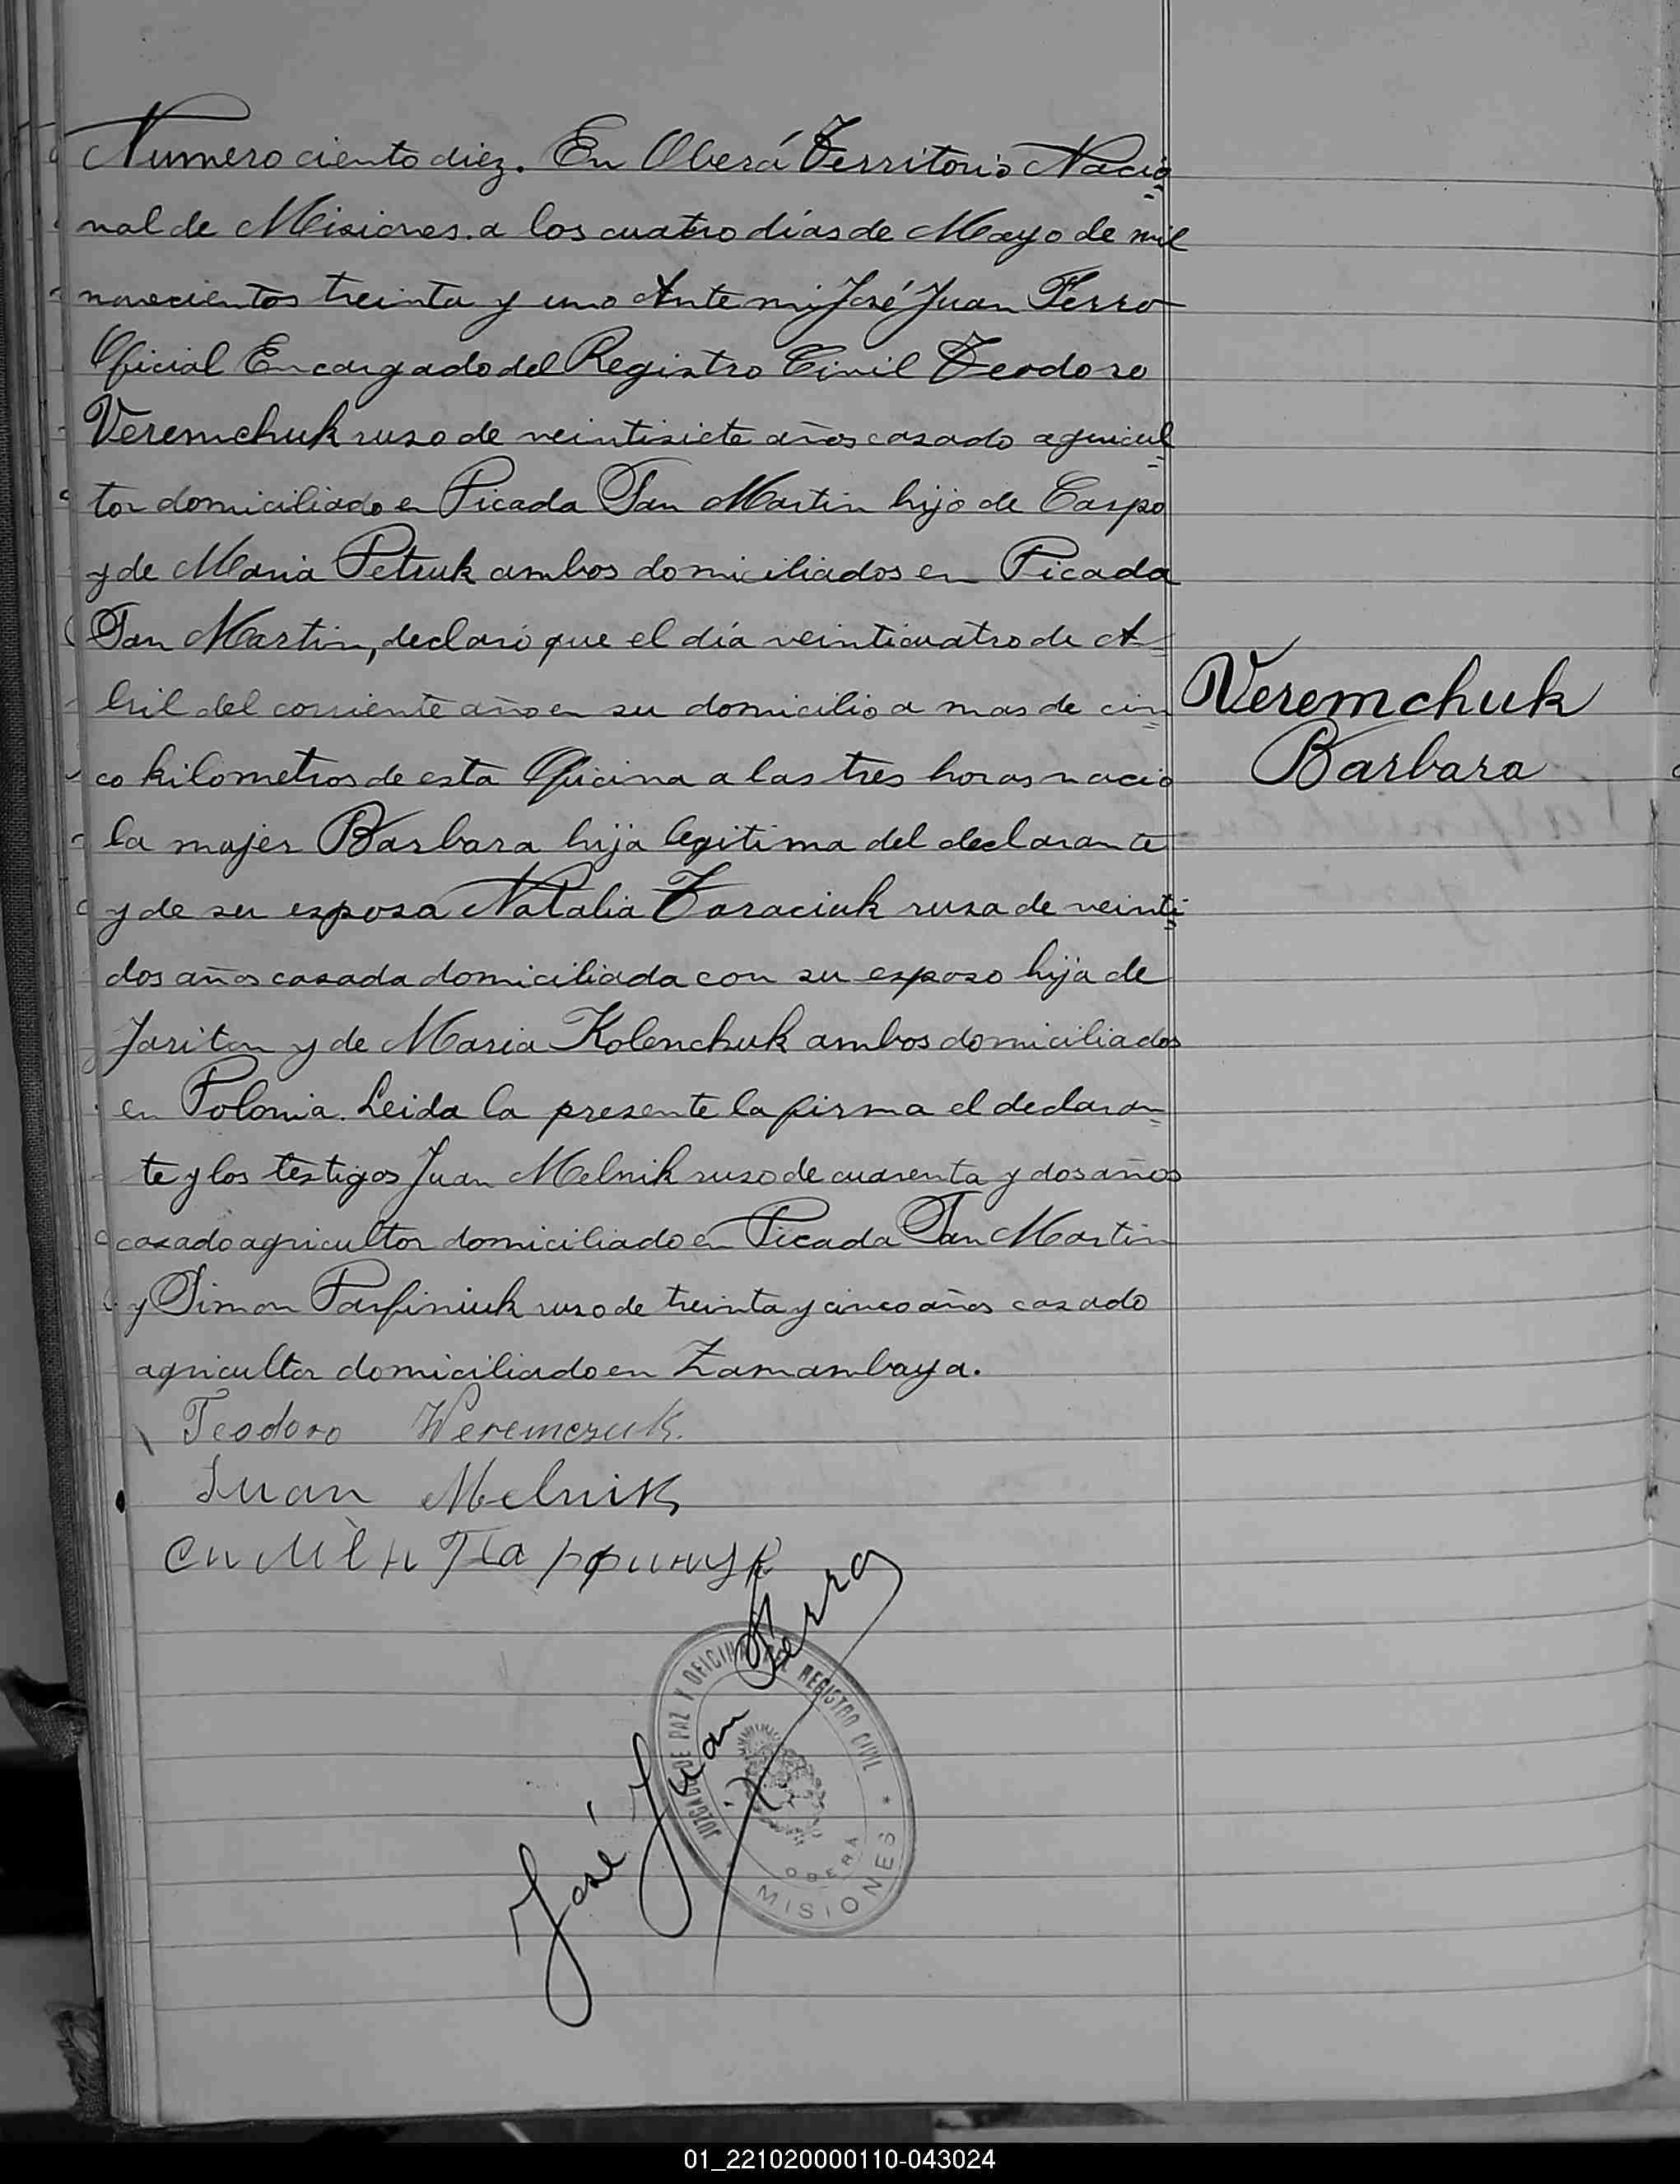 Numero ciento diez. En Oberá Territorio Nacio
nal de Misiones. a los cuatro días de Mayo de mil
novecientos treinta y uno Ante mi José Juan Ferro
Oficial Encargado del Registro Civil Teodoro
Veremchuk ruso de veintisiete años casado agricul
tor domiciliado en Picada San Martin hijo de Carpo
y de Maria Petruk ambos domiciliados en Picada
San Martin, declaró que el día veinticuatro de A
bril del corriente año en su domicilio a mas de cin
co kilometros de esta Oficina a las tres horas nacio
la mujer Barbara hija legitima del declarante
y de su esposa Natalia Taraciuk rusa de veinti
dos años casada domiciliada con su esposo hija de
Jariton y de Maria Kolenchuk ambos domiciliados
en Polonia. Leida la presente la firma el declaran
te y los testigos Juan Melnik ruso de cuarenta y dos años
casado agricultor domiciliado en Picada San Martin
y Simon Parfiniuk ruso de treinta y cinco años casado
agricultor domiciliado en Zamambaya.
Veremchuk
Barbara
Teodoro Weremczuk.
Juan Melnik
Симѐн Парфинук
José Juan Ferro
JUZGADO DE PAZ Y OFICINA DEL REGISTRO CIVIL
* OBERÁ
MISIONES
01_221020000110-043024